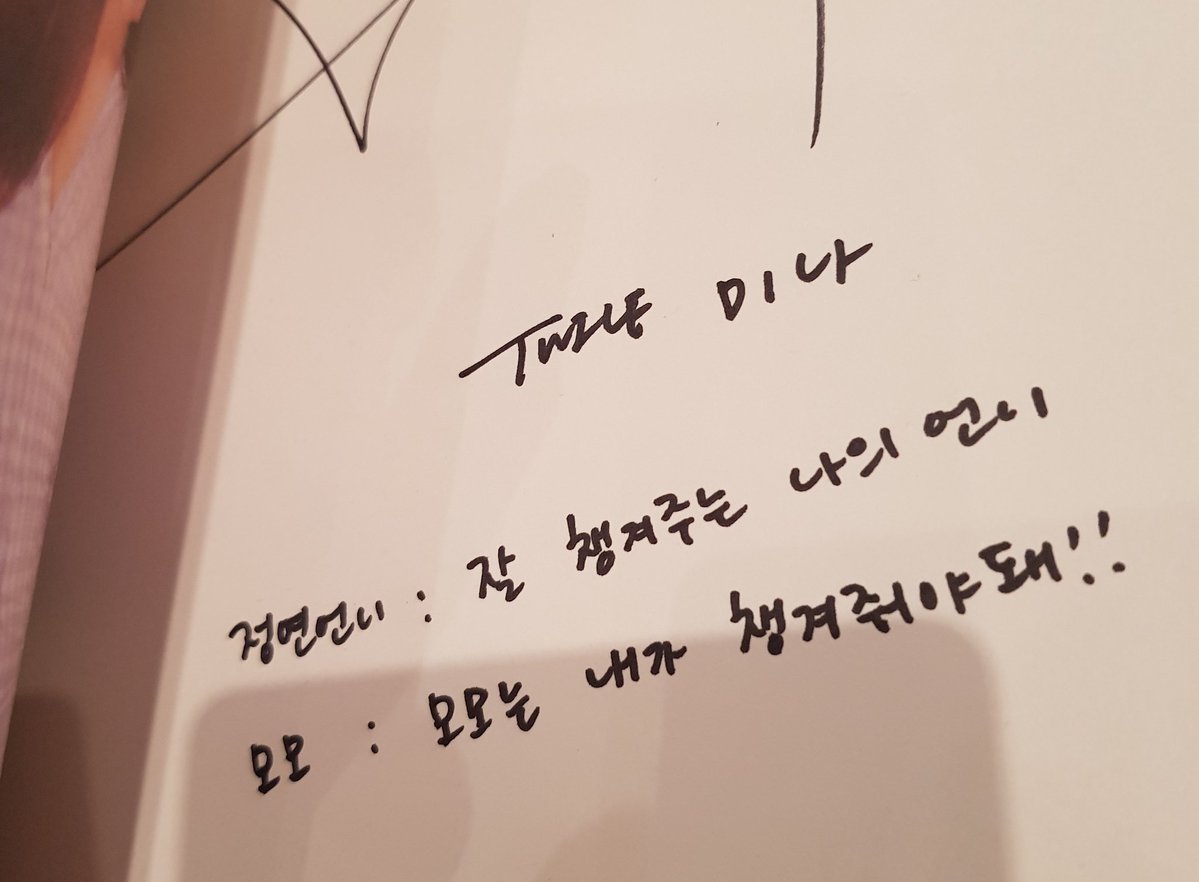 TWICE 미나
정연언니 : 잘 챙겨주는 나의 언니
모모 : 모모는 내가 챙겨줘야돼!!